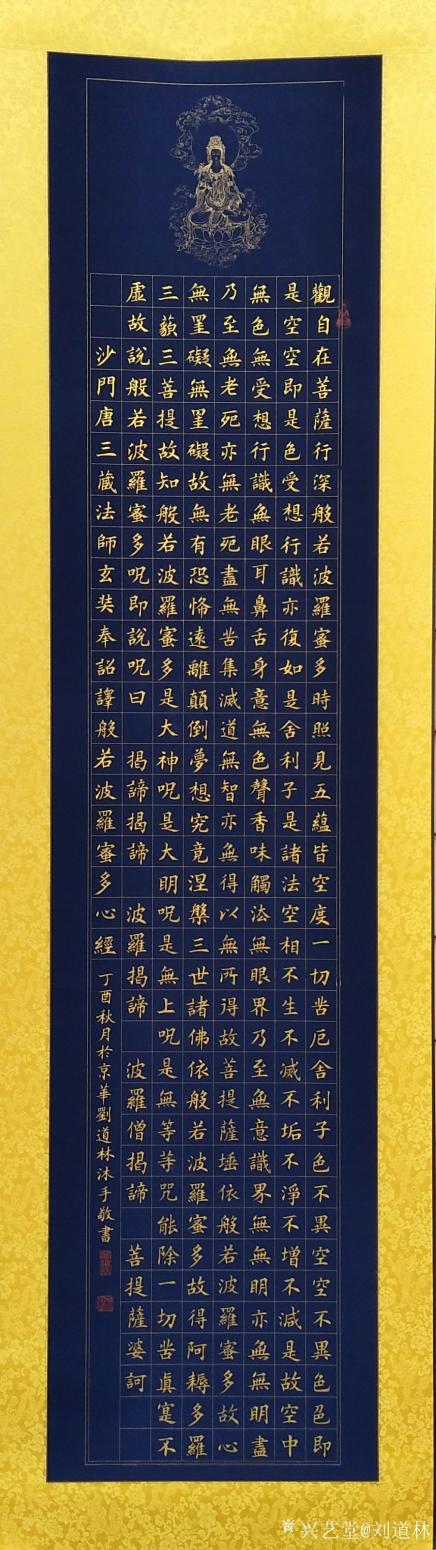 觀自在菩薩行深般若波羅蜜多時照見五蘊皆空度一切苦厄舍利子色不異空空不異色色即
是空空即是色受想行識亦復如是舍利子是諸法空相不生不滅不垢不淨不增不減是故空中
無色無受想行識無眼耳鼻舌身意無色聲香味觸法無眼界乃至無意識界無無明亦無無明盡
乃至無老死亦無老死盡無苦集滅道無智亦無得以無所得故菩提薩埵依般若波羅蜜多故心
無罣礙無罣礙故無有恐怖遠離顛倒夢想究竟涅槃三世諸佛依般若波羅蜜多故得阿耨多羅
三藐三菩提故知般若波羅蜜多是大神呪是大明呪是無上呪是無等等咒能除一切苦真寔不
虛故說般若波羅蜜多呪即說呪曰 揭諦揭諦 波羅揭諦 波羅僧揭諦 菩提薩婆訶
沙門唐三藏法師玄奘奉詔譯般若波羅蜜多心經 丁酉秋月於京華劉道林沐手敬書
兴艺堂@刘道林